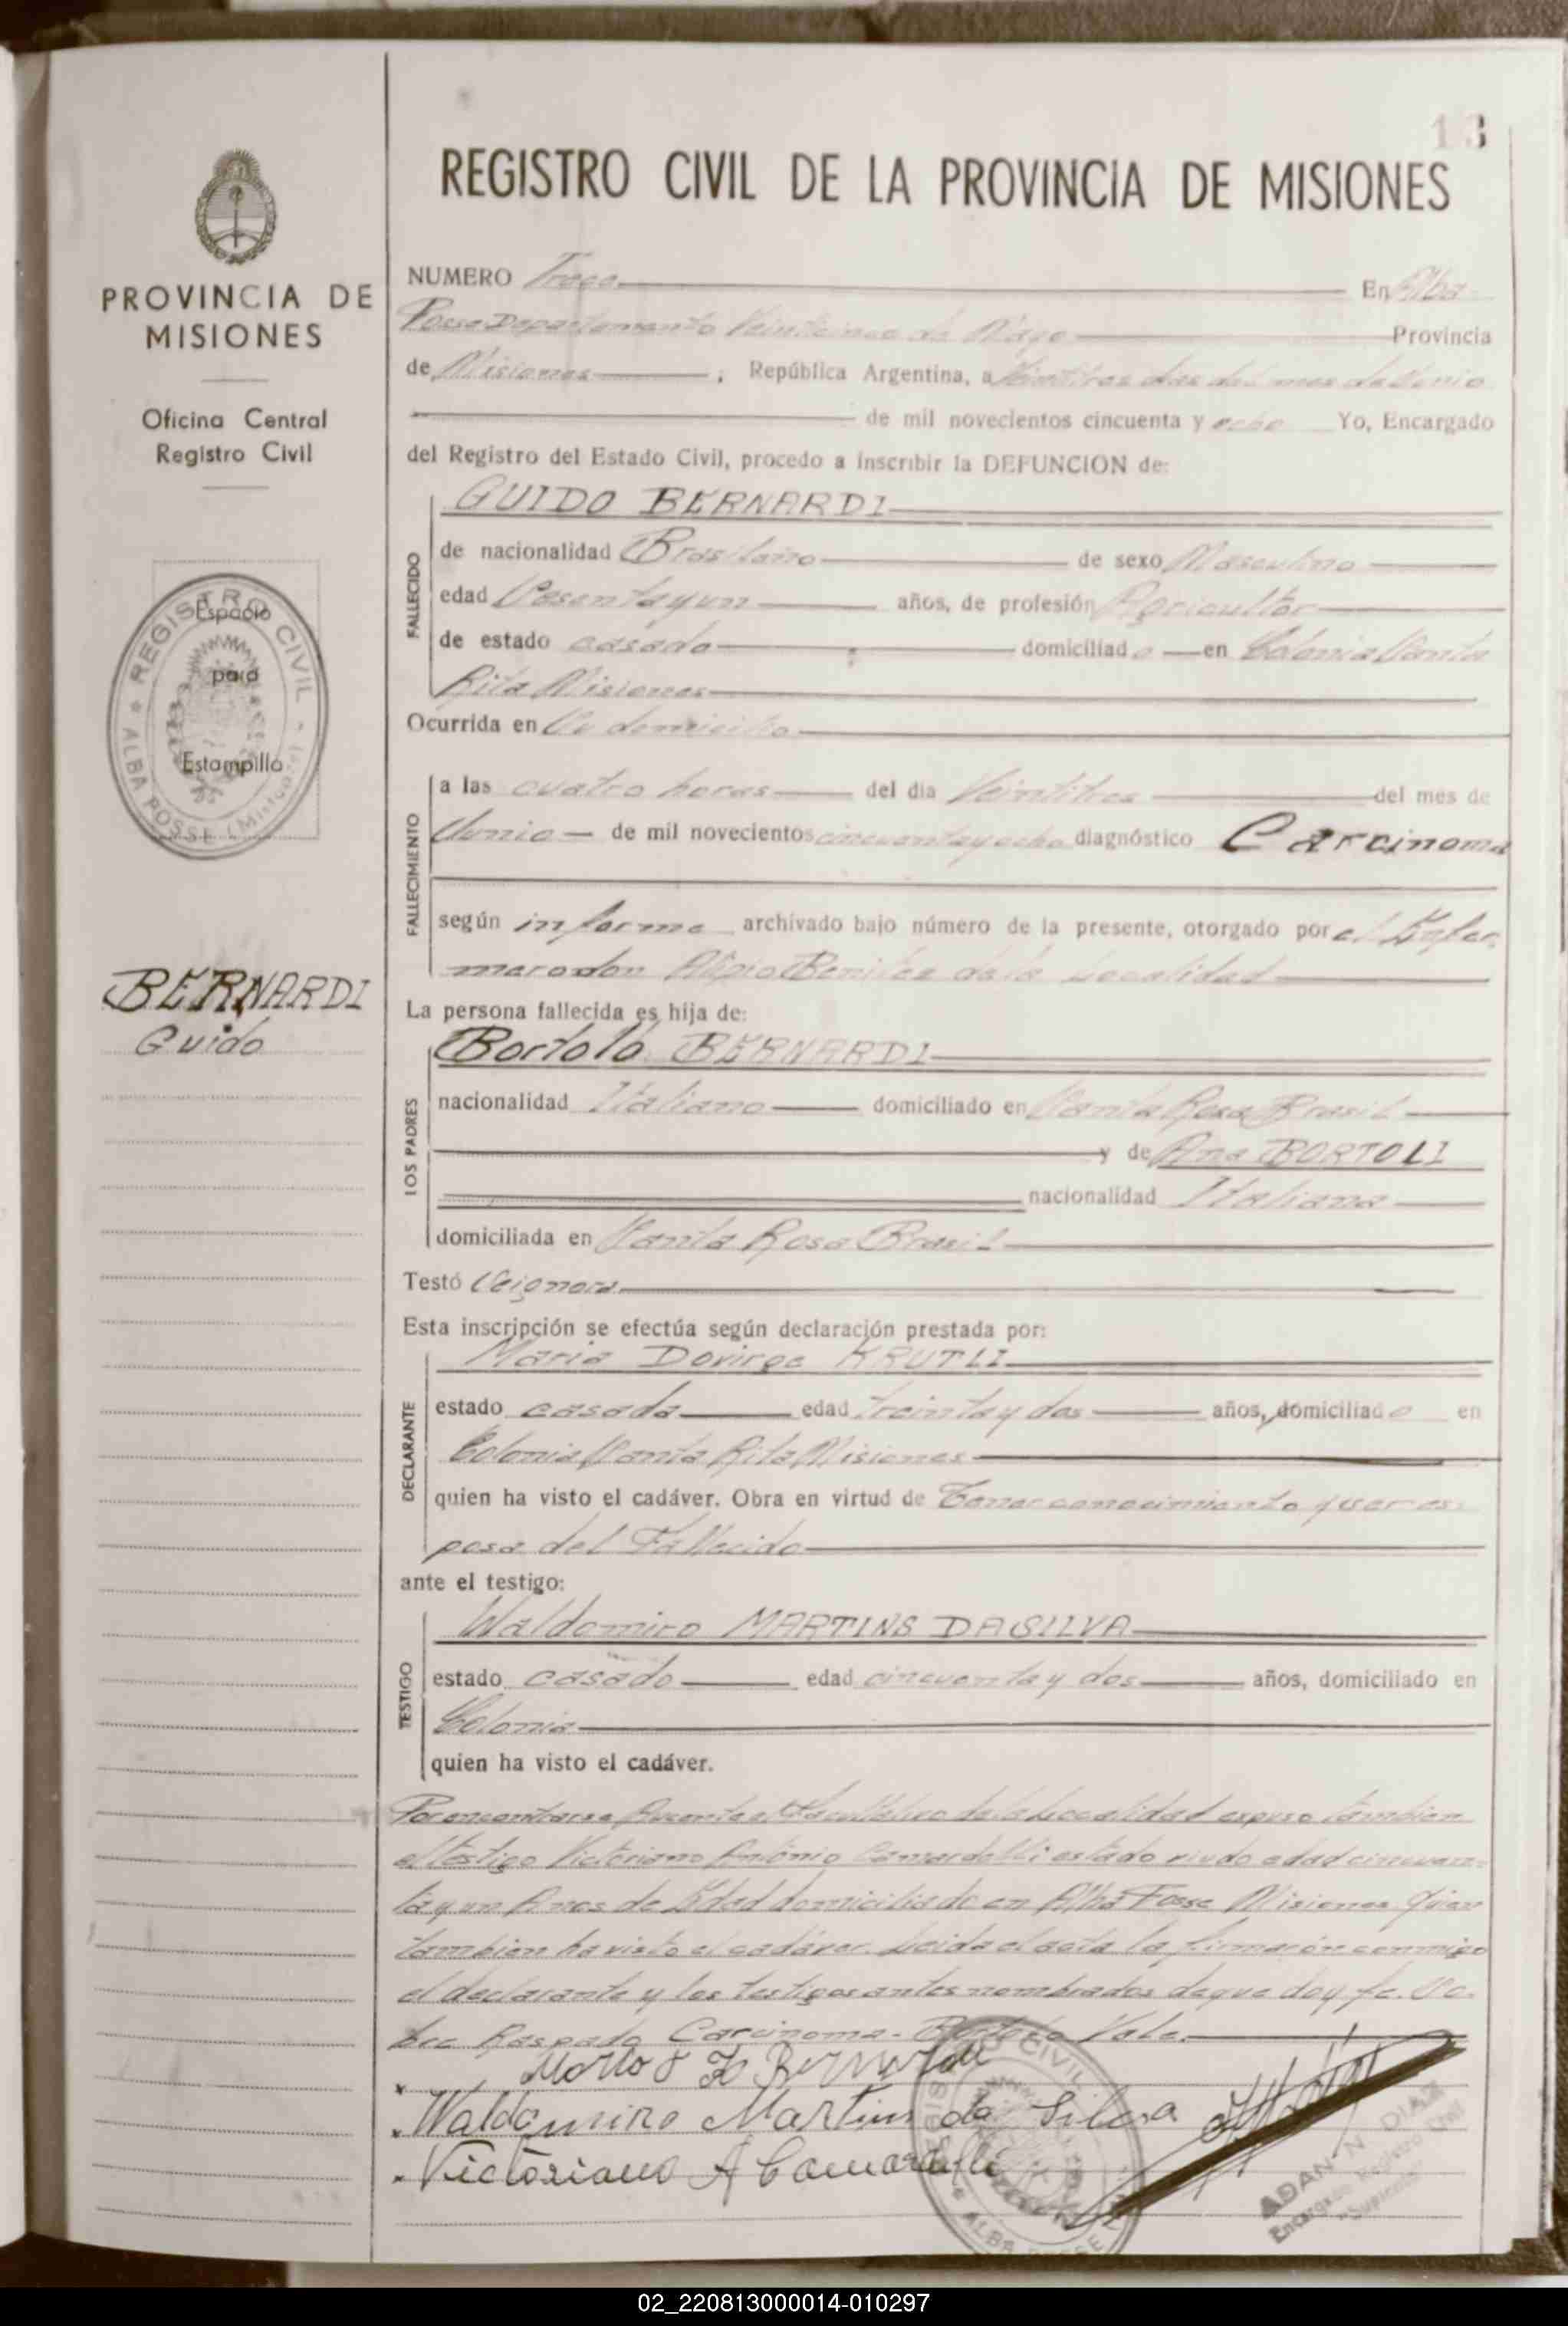 13
REGISTRO CIVIL DE LA PROVINCIA DE MISIONES
PROVINCIA DE
MISIONES
Oficina Central
Registro Civil
REGISTRO CIVIL - ALBA POSSE (Misiones)
Espacio
para
Estampilla
BERNARDI
Guido
NUMERO Trece En Alba
Posse Departamento Veinticinco de Mayo Provincia
de Misiones ; República Argentina, a Veintitres dias del mes de Junio
de mil novecientos cincuenta y ocho Yo, Encargado
del Registro del Estado Civil, procedo a inscribir la DEFUNCION de:
FALLECIDO
GUIDO BERNARDI
de nacionalidad Brasilaino de sexo Masculino
edad Sesentayun años, de profesión Agricultor
de estado casado domiciliado en Colonia Santa
Rita Misiones
Ocurrida en Su domicilio
FALLECIMIENTO
a las cuatro horas del dia Veintitres del mes de
Junio de mil novecientos cincuentayocho diagnóstico Carcinoma
según informe archivado bajo número de la presente, otorgado por el Enfer
mero don Aligio Benitez de la Localidad
La persona fallecida es hija de:
LOS PADRES
Bortolo BERNARDI
nacionalidad Italiano domiciliado en Santa Rosa Brasil
y de Ana BORTOLI
nacionalidad Italiana
domiciliada en Santa Rosa Brasil
Testó
Esta inscripción se efectúa según declaración prestada por:
DECLARANTE
Maria KRUTLI
estado casada edad treintay dos años, domiciliado en
Colonia Santa Rita Misiones
quien ha visto el cadáver. Obra en virtud de Tener conocimiento y ser es
posa del Fallecido
ante el testigo:
TESTIGO
Waldomiro MARTINS DA SILVA
estado casado edad cincuentay dos años, domiciliado en
Colonia
quien ha visto el cadáver.
Por encontrarse Ausente el Facultativo de la Localidad expuso tambien
el testigo Victoriano Antonio Camardelli estado viudo edad cincuen
tayun Anos de Edad domiciliado en Alba Posse Misiones Quien
tambien ha visto el cadáver. Leida el acta la firmarón conmigo
el declarante y los testigos antes nombrados de que doy fe. So
bre Raspado Carcinoma - Bortolo Vale.
Waldomiro Martins da Silva
Victoriano A Camardelli
ADAN N. DIAZ
Encargado Registro Civil
"Suplente"
02_220813000014-010297